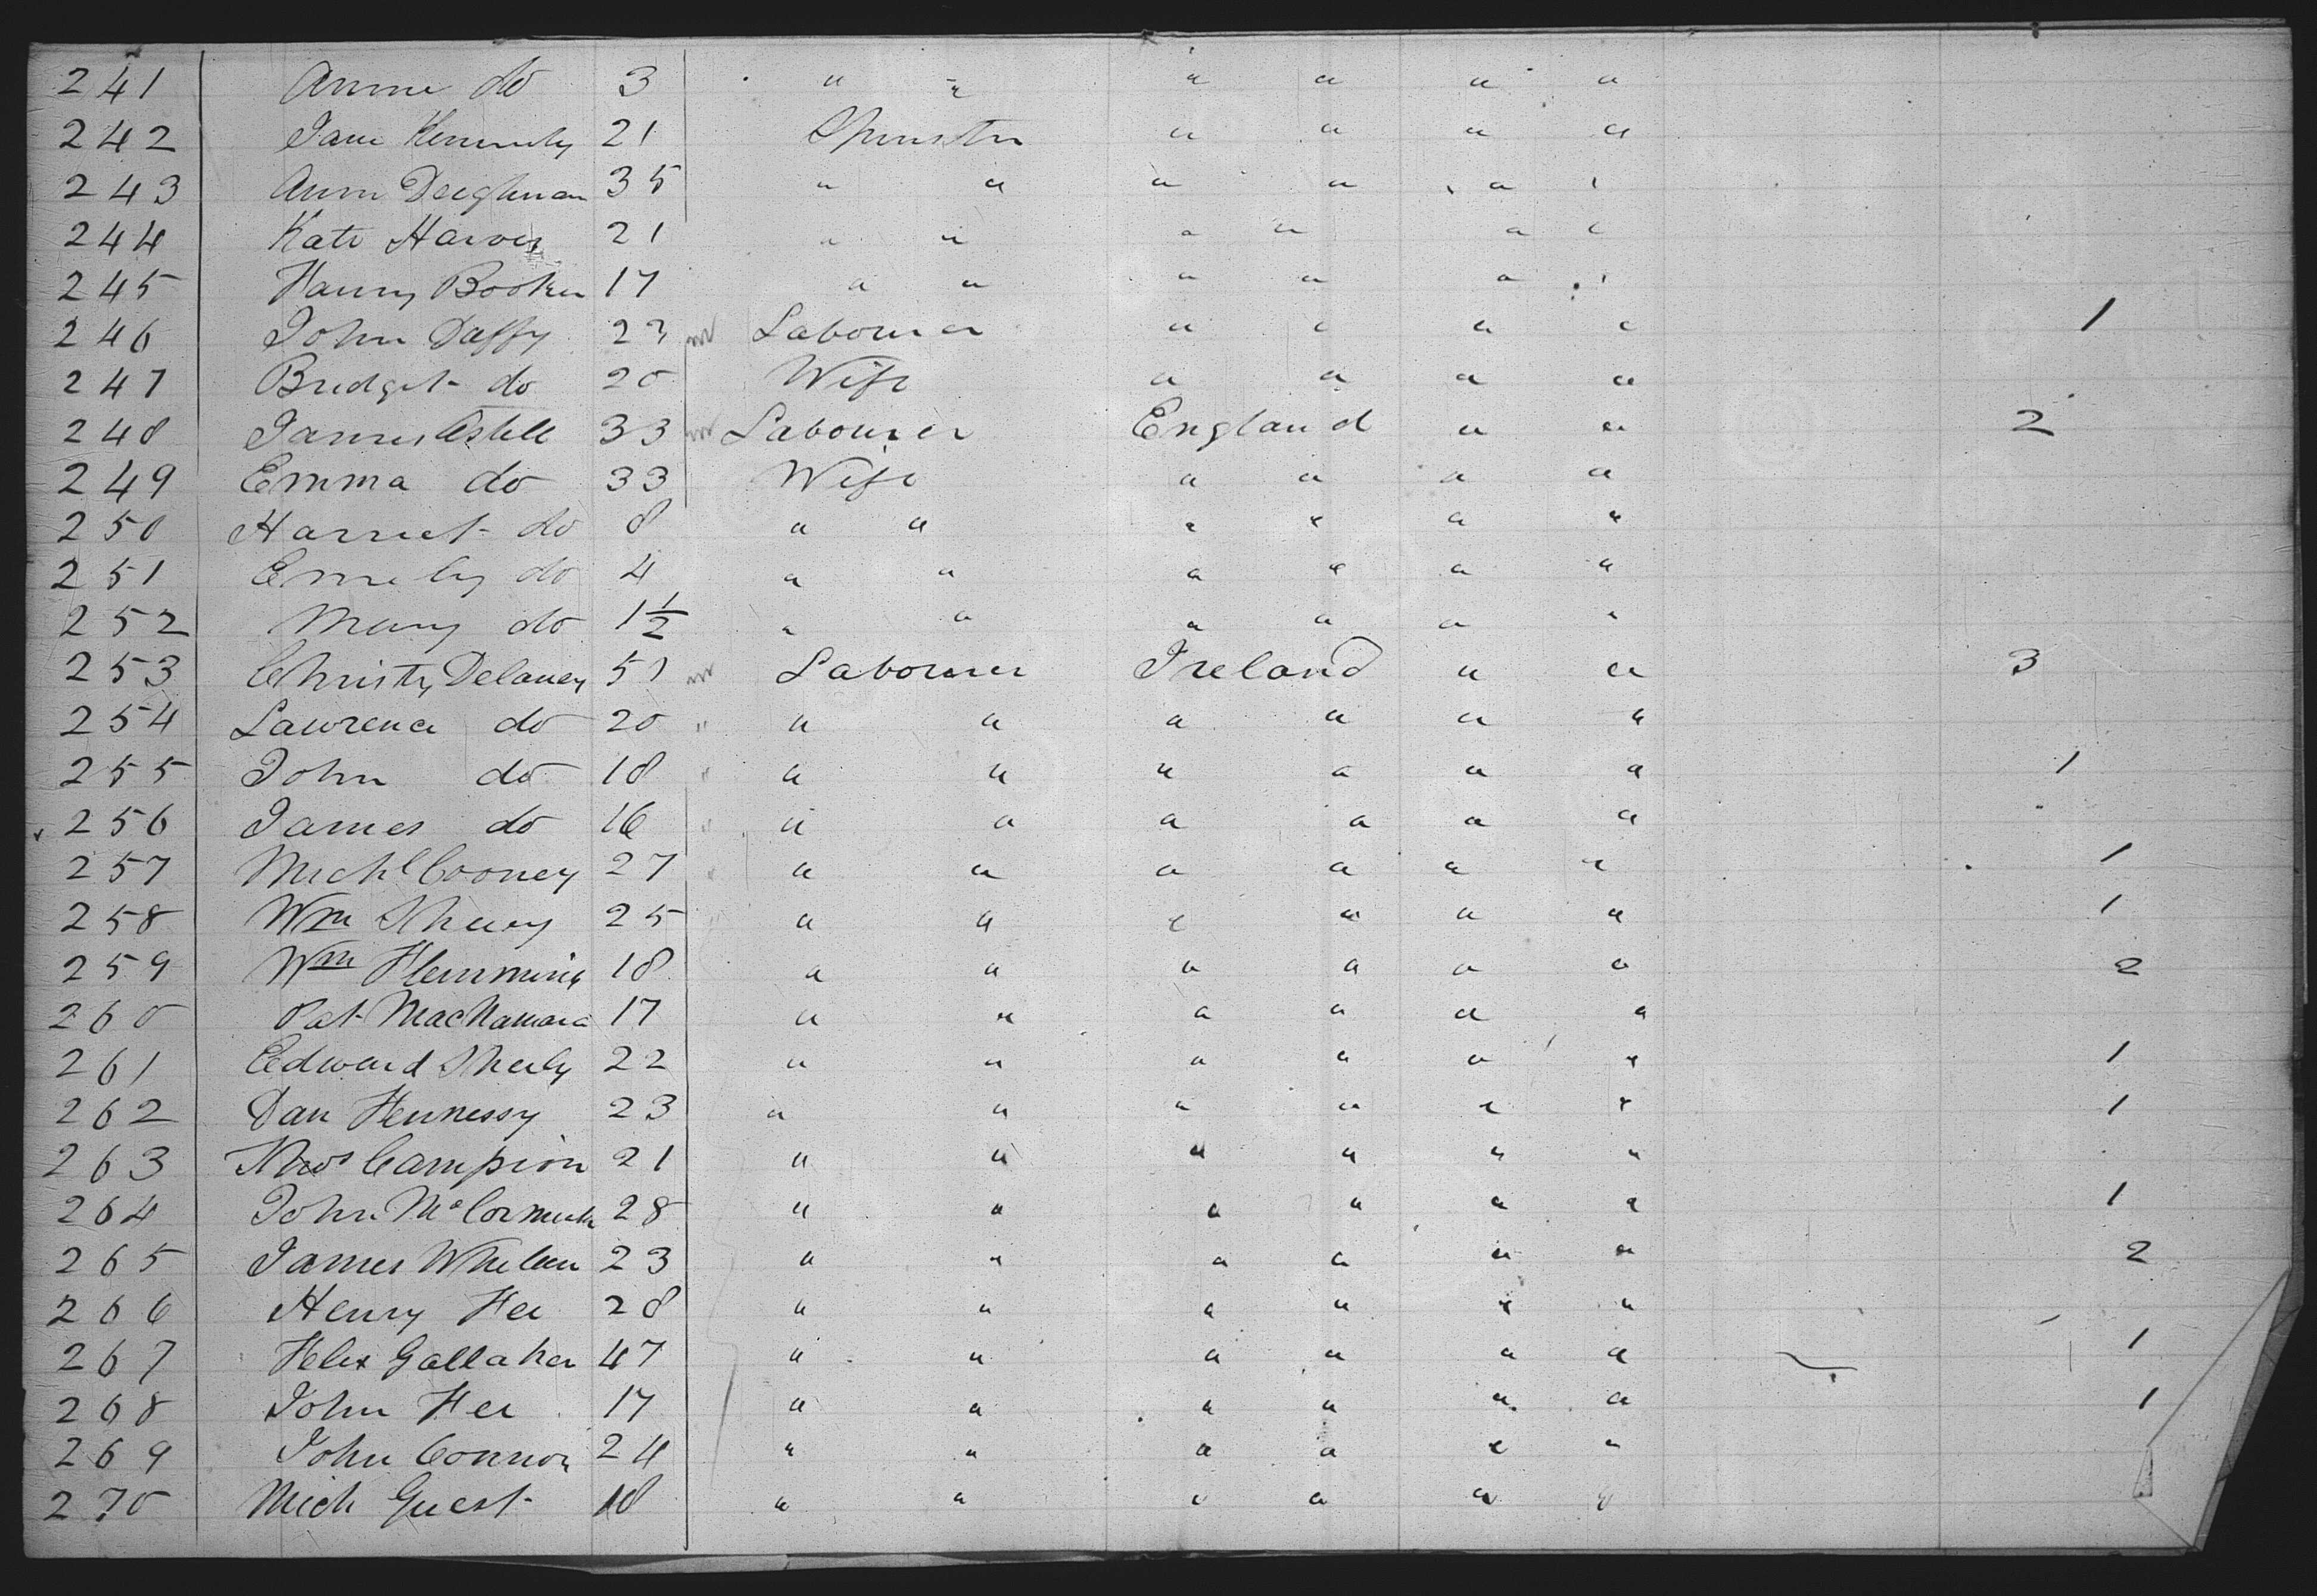 241 Annie do 3 " " " " " "
242 Jane Kennedy 21 Spinster " " " "
243 Ann Deeghnan 35 " " " " " "
244 Kate Harvey 21 " " " " " "
245 Fanny Booker 17 " " " " " "
246 John Daffy 23 Labourer " " " " 1
247 Bridget do 20 Wife " " " "
248 James Astell 33 Labourer England " " 2
249 Emma do 33 Wife " " " "
250 Harriet do 8 " " " " " "
251 Emily do 4 " " " " " "
252 Mary do 1½ " " " " " "
253 Christy Delaney 51 Labourer Ireland " " 3
254 Lawrence do 20 " " " " " " "
255 John do 18 " " " " " " " 1
256 James do 16 " " " " " " "
257 Michl Cooney 27 " " " " " " " 1
258 Wm 25 " " " " " " 1
259 Wm Flemming 18 " " " " " " 2
260 Pat MacNamara 17 " " " " " "
261 Edward Sheely 22 " " " " " " 1
262 Dan Hennessy 23 " " " " " " 1
263 Thos Campion 21 " " " " " "
264 John McCormick 28 " " " " " " 1
265 James Whelan 23 " " " " " " 2
266 Henry Fee 28 " " " " " "
267 Felix Gallaher 47 " " " " " " 1
268 John Fee 17 " " " " " " 1
269 John Connor 24 " " " " " "
270 Mich Guest 18 " " " " " "